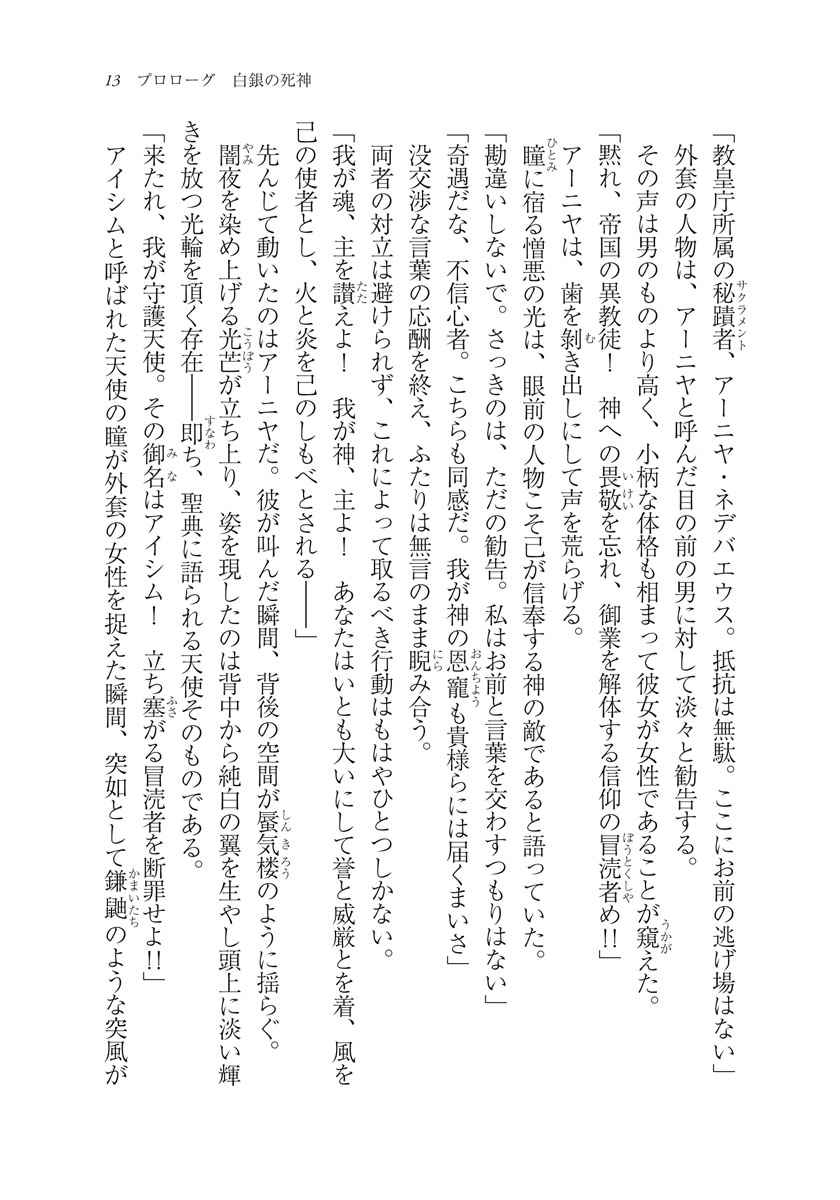 13 プロローグ 白銀の死神
「教皇庁所属の秘蹟者、アーニヤ・ネデバエウス。抵抗は無駄。ここにお前の逃げ場はない」
サクラメント
外套の人物は、アーニヤと呼んだ目の前の男に対して淡々と勧告する。
その声は男のものより高く、小柄な体格も相まって彼女が女性であることが窺えた。
うかが
「黙れ、帝国の異教徒！　神への畏敬を忘れ、御業を解体する信仰の冒涜者め!!」
いけい
ぼうとくしや
アーニヤは、歯を剝き出しにして声を荒らげる。
む
瞳に宿る憎悪の光は、眼前の人物こそ己が信奉する神の敵であると語っていた。
ひとみ
「勘違いしないで。さっきのは、ただの勧告。私はお前と言葉を交わすつもりはない」
「奇遇だな、不信心者。こちらも同感だ。我が神の恩寵も貴様らには届くまいさ」
おんちよう
没交渉な言葉の応酬を終え、ふたりは無言のまま睨み合う。
にら
両者の対立は避けられず、これによって取るべき行動はもはやひとつしかない。
「我が魂、主を讃えよ！　我が神、主よ！　あなたはいとも大いにして誉と威厳とを着、風を
たた
己の使者とし、火と炎を己のしもべとされる――」
先んじて動いたのはアーニヤだ。彼が叫んだ瞬間、背後の空間が蜃気楼のように揺らぐ。
しんきろう
闇夜を染め上げる光芒が立ち上り、姿を現したのは背中から純白の翼を生やし頭上に淡い輝
やみ
こうぼう
きを放つ光輪を頂く存在――即ち、聖典に語られる天使そのものである。
すなわ
「来たれ、我が守護天使。その御名はアイシム！　立ち塞がる冒涜者を断罪せよ!!」
みな
ふさ
アイシムと呼ばれた天使の瞳が外套の女性を捉えた瞬間、突如として鎌鼬のような突風が
かまいたち